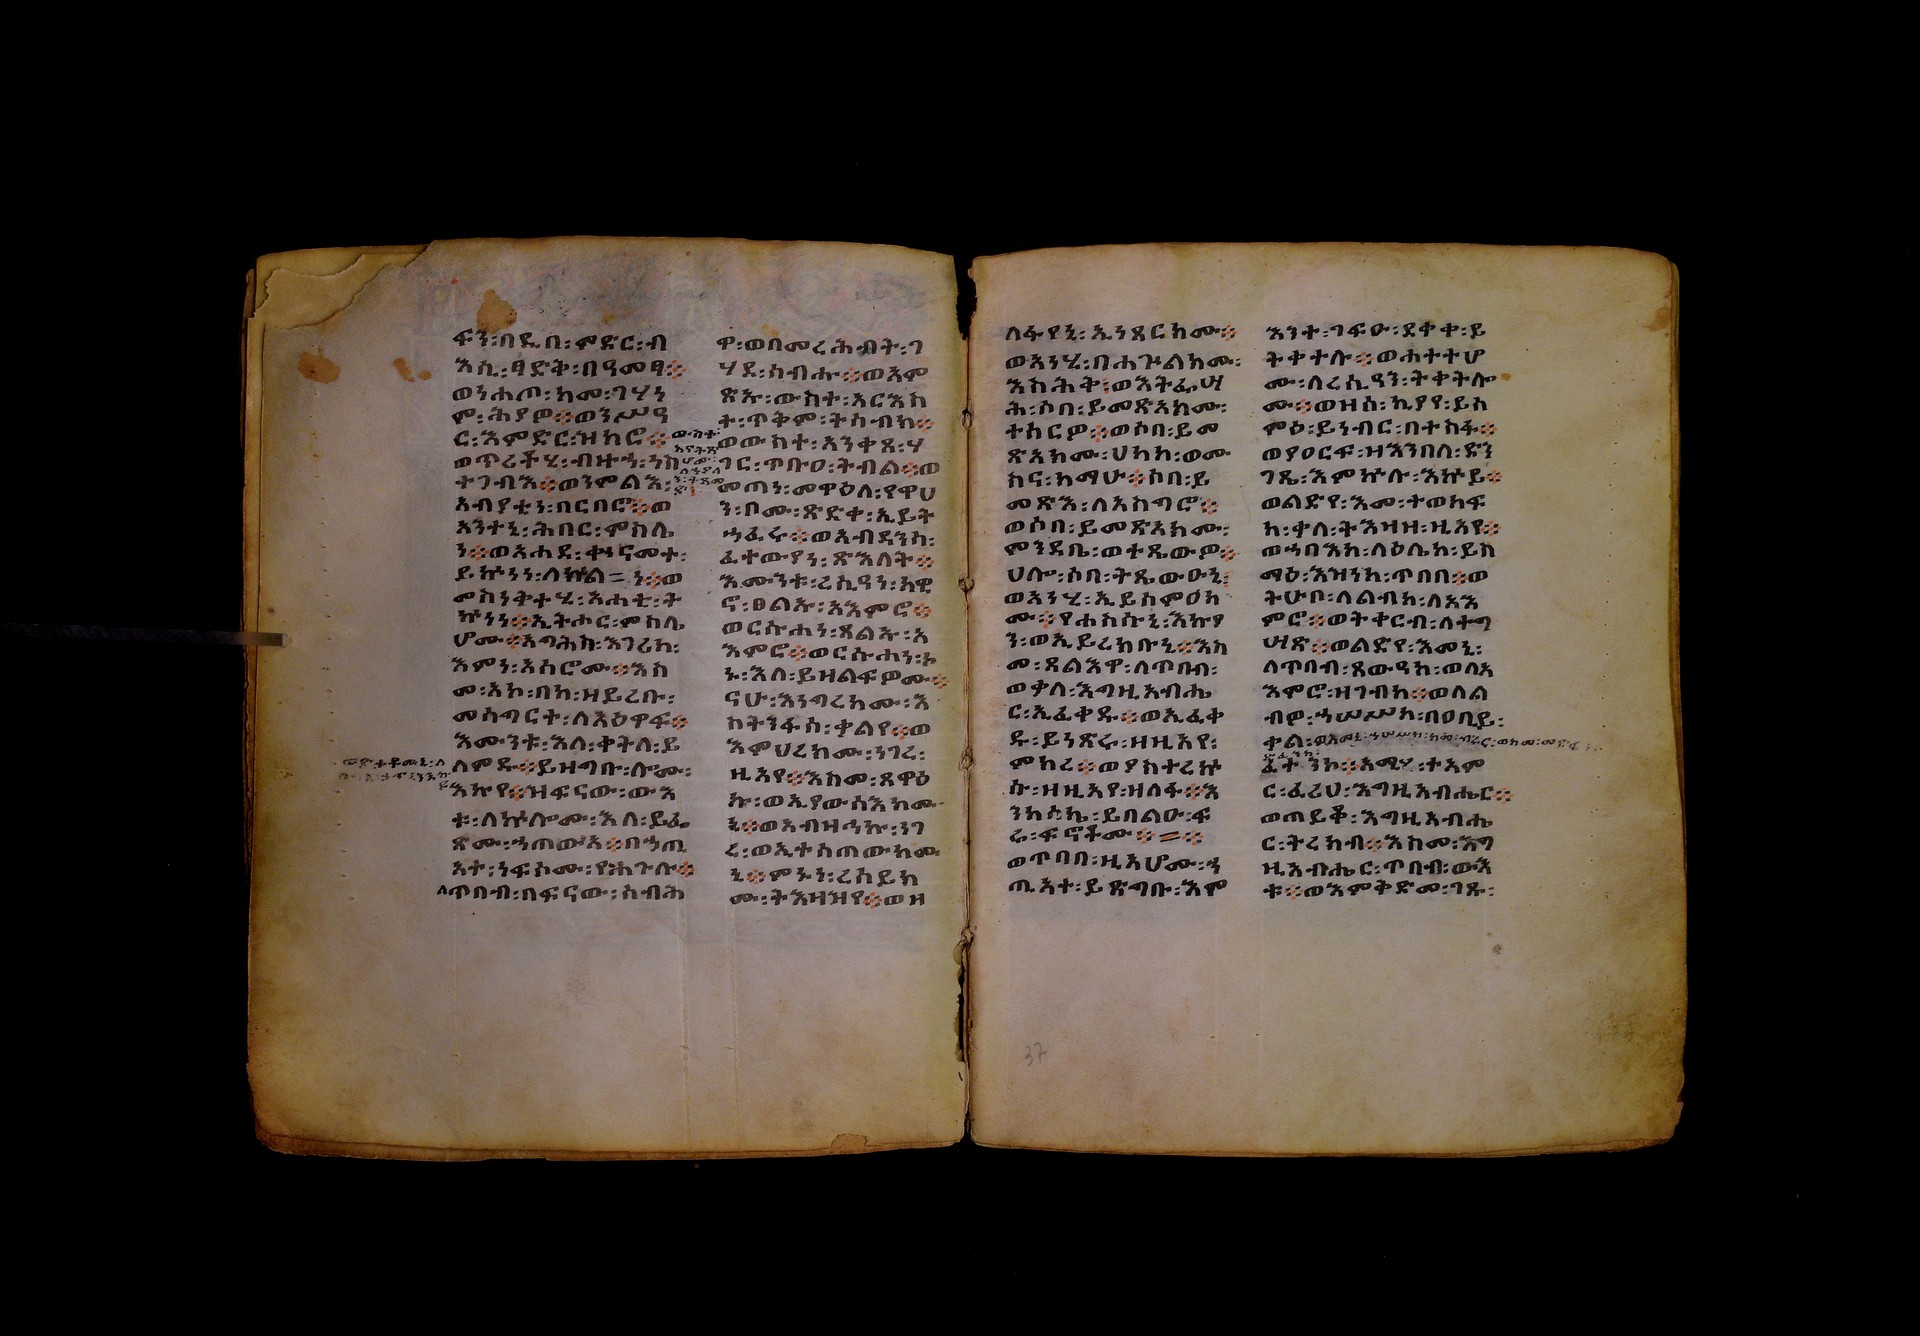 ፍን፡በዲበ፡ምድር፡ብ
እሲ፡ፃድቅ፡በዓመፃ፨
ወንሐጦ፡ከመ፡ገሃነ
ም፡ሕያዎ፨ወንሥዓ
ር፡እምድር፡ዝክሮ፨
ወጥሪቶሂ፡ብዙኃ፡ንከ
ተገብእ፨ወንምልእ፡
አብያቲነ፡በርበሮ፨ወ
አንተኒ፡ሕበር፡ምስሌ
ነ፨ወአሐደ፡ቍናመተ፡
ይኩነነ፡ለኵል=ነ፨ወ
መስንቅተሂ፡አሐቲ፡ት
ኵነነ፨ኢትሖር፡ምስሌ
ሆሙ፨አግሕሥ፡እገሪከ፡
እምነ፡አሰሮሙ፨እስ
መ፡አኮ፡በከ፡ዘይረቡ፡
መሳግርተ፡ለአዕዋፍ፨
እሙንቱ፡እለ፡ቀትለ፡ይ
ለምዱ፨ይዘግቡ፡ሎሙ፡
እኩየ፨ዝፍናው፡ውእ
ቱ፡ለኵሎሙ፡እለ፡ይፌ
ጽሙ፡ኃጢውአ፨በኃጢ
አት፡ነፍሶሙ፡የሐጉሉ፨
ለጥበብ፡በፍናው፡ስብሕ
ዋ፡ወበመረሕብት፡ገ
ሃደ፡ስብሑ፨ወእም
ጽኡ፡ውስተ፡አርእስ
ት፡ጥቅም፡ትሰብክ፨
ወውስተ፡አንቀጸ፡ሃ
ገር፡ጥቡዐ፡ትብል፨ወ
መጠነ፡መዋዕለ፡የዋህ
ን፡ቦሙ፡ጽድቀ፡ኢይት
ኀፈሩ፨ወአብዳንሰ፡
ፈተውየን፡ጽእለት፨
እሙንቱ፡ረሲዓን፡አዊ
ኖ፡ፀልኡ፡አእምሮ፨
ወርሱሐን፡ጸልኡ፡አ
እምሮ፨ወርሱሐን፡ኮ
ኑ፡እለ፡ይዘልፍዎሙ፨
ናሁ፡እነግረክሙ፡እ
ስትንፋሰ፡ቃልየ፨ወ
እምህረክሙ፡ነገረ፡
ዚአየ፨እስመ፡ጸዋዕ
ኩ፡ወኢየውሳእክሙ
ኒ፨ወአብዛኅኩ፡ነገ
ረ፡ወኢተሰጠውክሙ
ኒ፨ምኑነ፡ረሰይክ
ሙ፡ትእዛዝየ፨ወዘ
ለፋየኒ፡ኢነጸርክሙ፨
ወአንሂ፡በሐጕልክሙ፡
እስሕቅ፡ወእትፌሣ
ሕ፡ሶበ፡ይመጽአክሙ፡
ተሰርዎ፨ወሶበ፡ይመ
ጽአክሙ፡ሀከክ፡ወሙ
ስና፡ከማሁ፨ሶበ፡ይ
መጽእ፡ለአስግሮ፨
ወሶበ፡ይመጽአክሙ፡
ምንዳቤ፡ወተጼውዎ፨
ህሎ፡ሶበ፡ትጼውዑኒ፡
ወአንሂ፡ኢይሰምዐክ
ሙ፨የሐሥሡኒ፡እኩያ
ን፡ወኢይረክቡኒ፨እስ
መ፡ጸልእዋ፡ለጥበብ፡
ወቃለ፡እግዚአብሔ
ር፡ኢፈቀዱ፨ወኢፈቀ
ዱ፡ይነጽሩ፡ዘዚአየ፡
ምክረ፨ወያስተረኵ
ሱ፡ዘዚአየ፡ዘለፋ፨እ
ንከሰኬ፡ይበልዑ፡ፍ
ሬ፡ፍኖቶሙ፨=፨
ወጥበበ፡ዚአሆሙ፡ኃ
ጢአተ፡ይጽግቡ፡እም
እንተ፡ገፍዑ፡ደቀቀ፡ይ
ትቀተሉ፨ወሐተተሆ
ሙ፡ለረሲዓን፡ትቀትሎ
ሙ፨ወዘሰ፡ኪያየ፡ይሰ
ምዕ፡ይነብር፡በተስፋ፨
ወያዐርፍ፡ዘእንበለ፡ድን
ገጼ፡እምኵሉ፡እኩይ፨
ወልድየ፡እመ፡ተወከፍ
ከ፡ቃለ፡ትእዛዝ፡ዚአየ፨
ወኀባእከ፡ላዕሌከ፡ይስ
ማዕ፡እዝንከ፡ጥበበ፨ወ
ትሁቦ፡ለልብከ፡ለአእ
ምሮ፨ወትቀርብ፡ለተግ
ሣጽ፨ወልድየ፡እመኒ፡
ለጥበብ፡ጸውዓከ፡ወለአ
እምሮ፡ዘገብከ፨ወለል
ብዎ፡ኃሠሥከ፡በዐቢይ፡
ቃል፡
ፈት
ንኮ፨አሜሃ፡ተአም
ር፡ፈሪሀ፡እግዚአብሔር፨
ወጠይቆ፡እግዚአብሔ
ር፡ትረክብ፨እስመ፡እግ
ዚአብሔር፡ጥበብ፡ውእ
ቱ፨ወእምቅድመ፡ገጹ፡
37